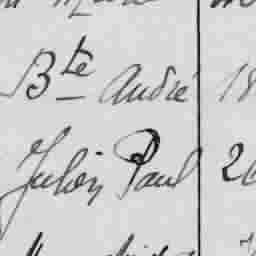 Bte André 18
Julien Paul 20